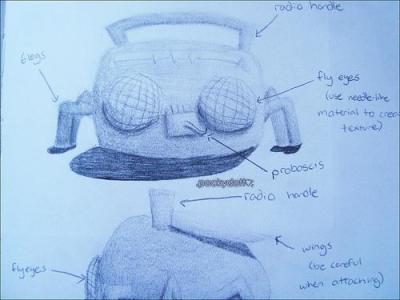 radio handle
6 legs
fly eyes
(use needle-like
material to crea
texture)
proboscis
radio handle
wings
(be careful
when attaching)
fly eyes